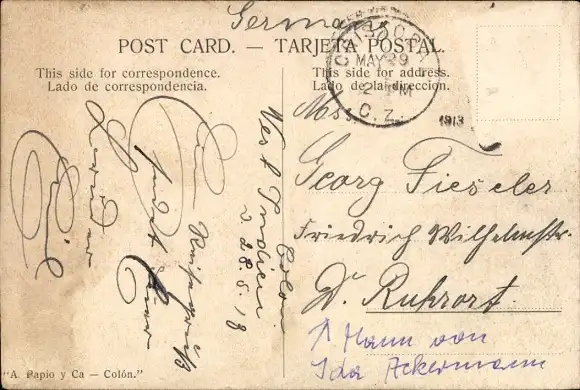 Germany
POST CARD. — TARJETA POSTAL.
This side for correspondence.
Lado de correspondencia.
This side for address.
Lado de la dirección.
CRISTOBAL
MAY 29
2 PM
C. Z.
1913
Georg Fieseler
Friedrich Wilhelmstr.
D. Ruhrort.
↑ Mann von
Ida Ackermann
Colon
West Indien
28.5.13
Ein
Reisegruß
sendet Euer
"A. Papio y Ca — Colón."